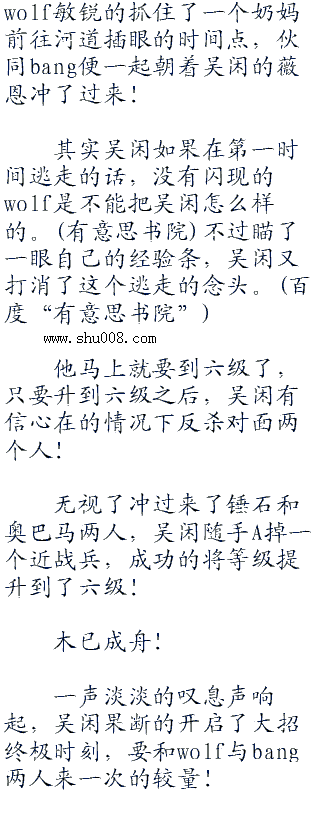 wolf敏锐的抓住了一个奶妈
前往河道插眼的时间点，伙
同bang便一起朝着吴闲的薇
恩冲了过来！
其实吴闲如果在第一时
间逃走的话，没有闪现的
wolf是不能把吴闲怎么样
的。(有意思书院)不过瞄了
一眼自己的经验条，吴闲又
打消了这个逃走的念头。(百
度“有意思书院”)
www.shu008.com
他马上就要到六级了，
只要升到六级之后，吴闲有
信心在的情况下反杀对面两
个人！
无视了冲过来了锤石和
奥巴马两人，吴闲随手A掉一
个近战兵，成功的将等级提
升到了六级！
木已成舟！
一声淡淡的叹息声响
起，吴闲果断的开启了大招
终极时刻，要和wolf与bang
两人来一次的较量！